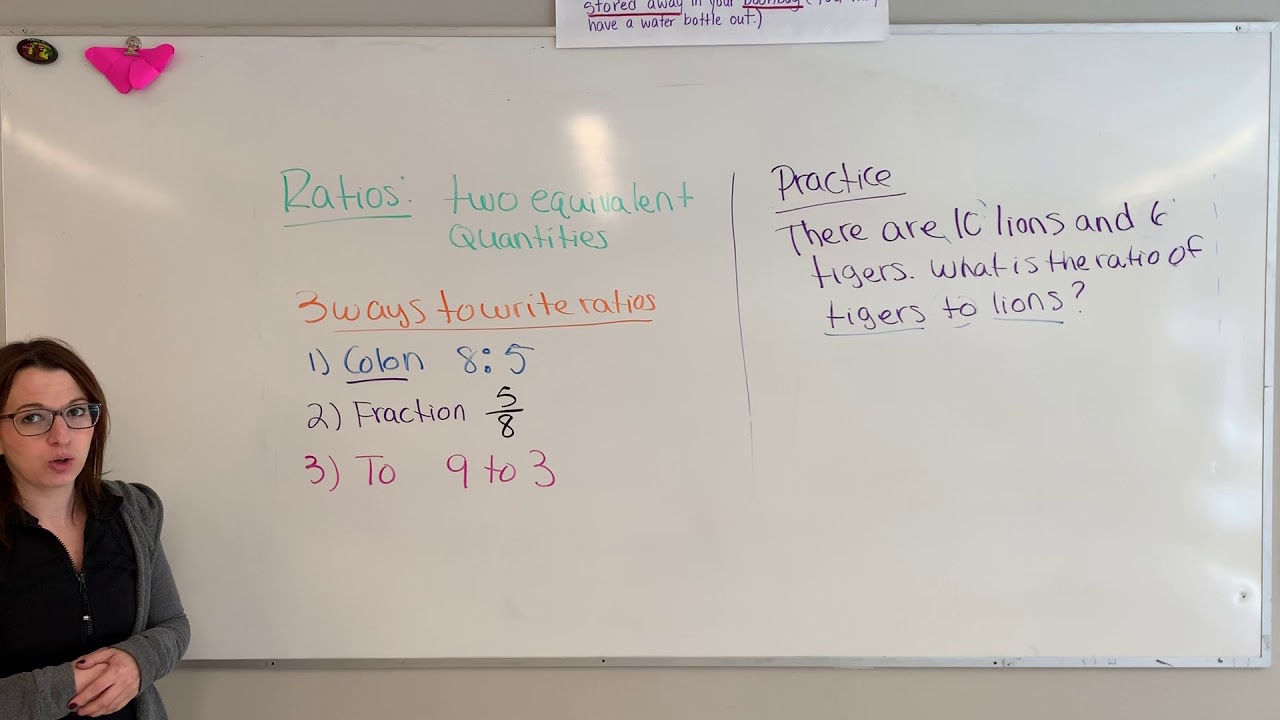 stored away in your
have a water bottle out.)
Ratios: two equivalent
Quantities
3 ways to write ratios
1) Colon 8:5
2) Fraction 5/8
3) To 9 to 3
Practice
There are lions and
tigers. What is the ratio of
tigers to lions?